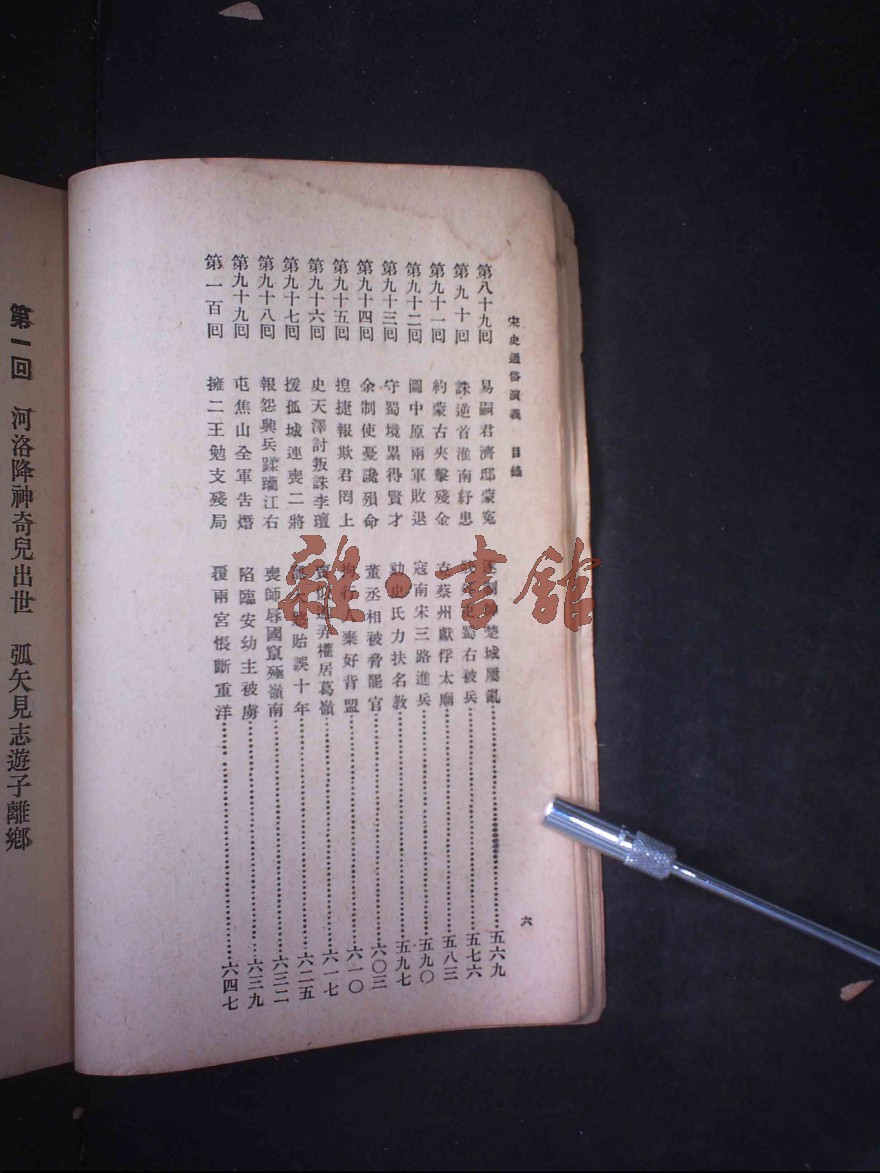 宋史通俗演義 目錄 六
第八十九回 易嗣君濟邸蒙寃 逐制帥楚城屢亂 五六九
第九十回 誅逆首淮南紓患 戕 蜀右被兵 五七六
第九十一回 約蒙古夾擊殘金 克蔡州獻俘太廟 五八三
第九十二回 圖中原兩軍敗退 寇南宋三路進兵 五九〇
第九十三回 守蜀境累得賢才 劾史氏力扶名敎 五九七
第九十四回 余制使憂讒殞命 董丞相被脅罷官 六〇三
第九十五回 捏捷報欺君罔上 拘行人棄好背盟 六一〇
第九十六回 史天澤討叛誅李璮 賈似道弄權居葛嶺 六一七
第九十七回 援孤城連喪二將 貽誤十年 六二五
第九十八回 報怨興兵蹂躪江右 喪師辱國竄殛嶺南 六三二
第九十九回 屯焦山全軍吿燬 陷臨安幼主被虜 六三九
第一百回 擁二王勉支殘局 覆兩宮悵斷重洋 六四七
第一回 河洛降神奇兒出世 弧矢見志遊子離鄉
雜·書館